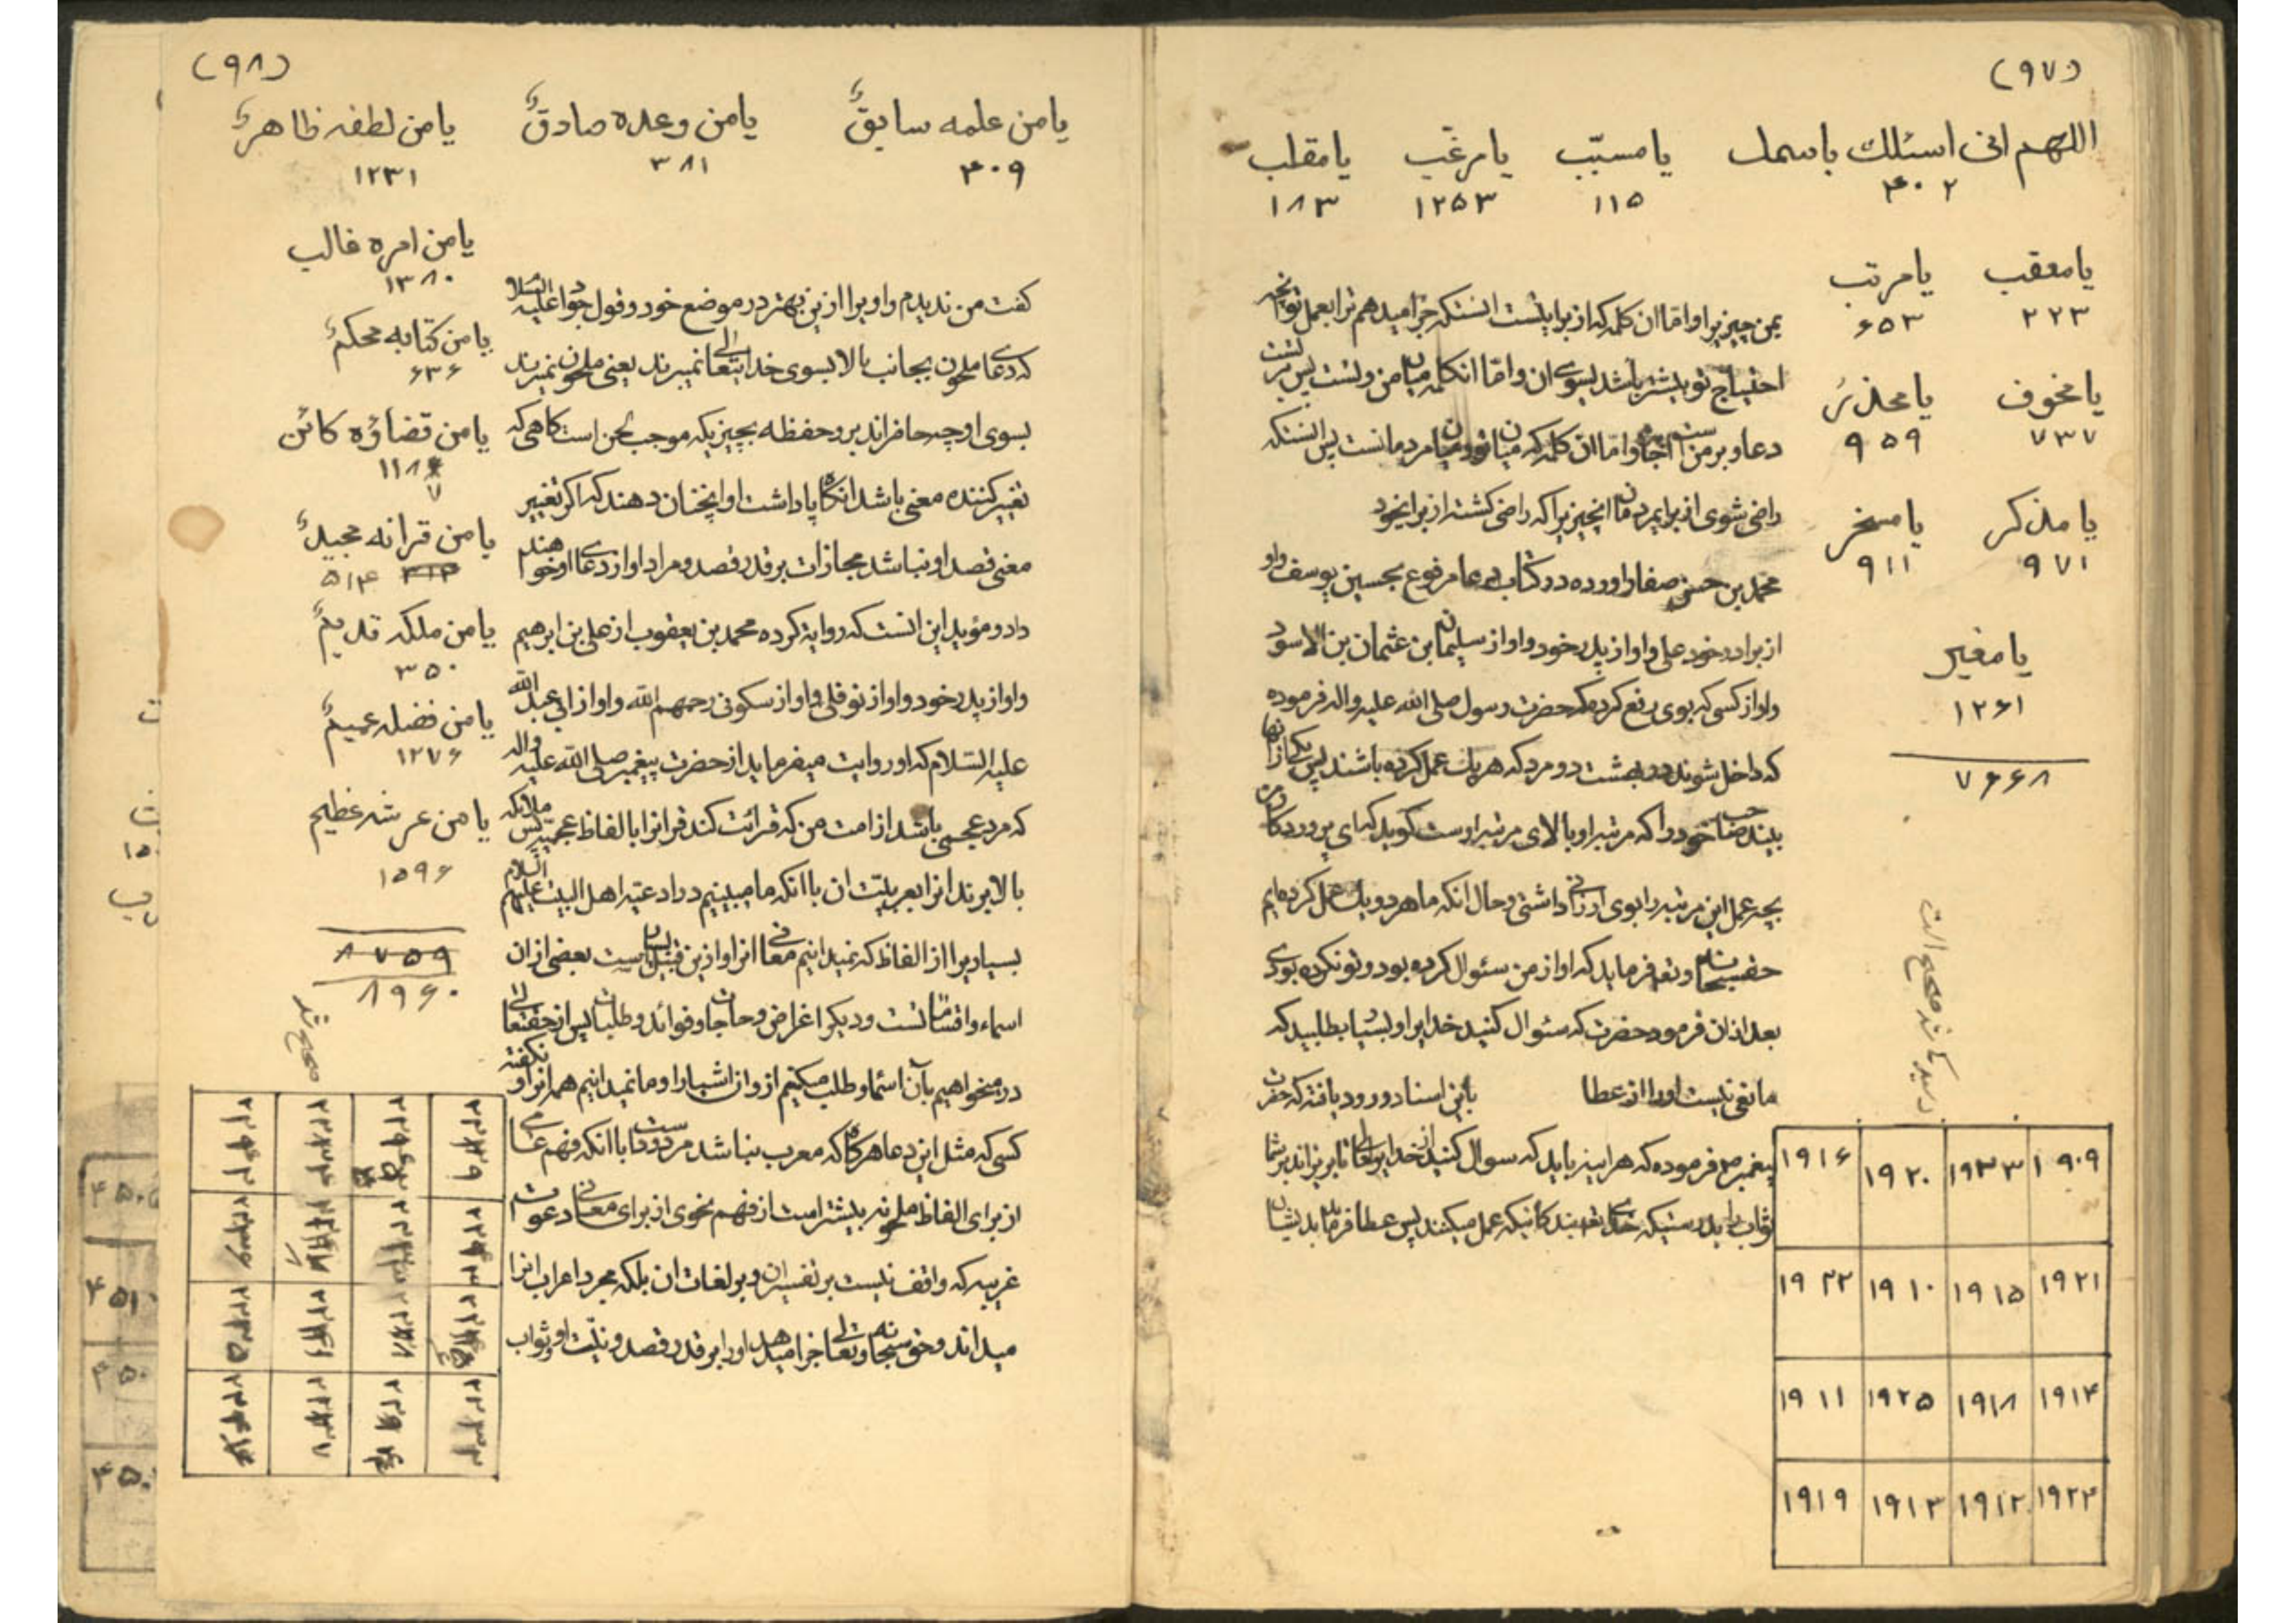 (۹۷)
اللهم انی اسئلك باسمك یا مسبّب یا مرغّب یا مقلب
۴۰۲ ۱۱۵ ۱۲۵۳ ۱۸۳
یا معقب یا مرتب
۲۲۳ ۶۵۳
یا مخوف یا محذر
۷۳۷ ۹۵۹
یا مذکر یا مسخر
۹۷۱ ۹۱۱
یا مغیر
۱۲۶۱
۷۶۶۸
بمن چیزیرا و اما ان کلمه که از برای تست انستکه جزا میدهم ترا بعمل تو
احتیاج تو بیشتر باشد بسوی ان و امّا انکلمه میان من و تست پس از تست
دعا و بر من است و امّا ان کلمه که میان تو و میان مردمانست پس انستکه
راضی شوی از برای مردمان انچیزیرا که راضی گشته از برایخود
محمد بن حسن صفار اورده در کتاب دعا مرفوع بحسین بن یوسف و او
از برادر خود علی و او از پدر خود و او از سلیمان بن عثمان بن الاسود
و او از کسی که بوی رفع کرده که حضرت رسول صلی الله علیه واله فرموده
که داخل شوند در بهشت دو مرد که هر یك عمل کرده باشند پس یکی از انها
بیند صاحب خود را که مرتبه او بالای مرتبه اوست گوید که ای پروردگار من
بچه عمل این مرتبه را بوی ارزانی داشتی و حال انکه ما هر دو یك عمل کرده ایم
حق سبحانه و تعالی فرماید که او از من سئوال کرده بود و تو نکرده بودی
بعد از ان فرمود حضرت که سئوال کنید خدایرا و بسیار بطلبید که
مانعی نیست او را از عطا باین اسناد ورود یافته که حضرت
پیغمبر ص فرموده که هر اینه باید که سوال کنید از خدایتعالی تا بریزاند بر شما
ثواب را بدرستیکه خدای تعالی بندگانیکه عمل میکنند پس عطا فرماید بدیشان
۱۹۱۶ ۱۹۲۰ ۱۹۲۳ ۱۹۰۹
۱۹۲۲ ۱۹۱۰ ۱۹۱۵ ۱۹۲۱
۱۹۱۱ ۱۹۲۵ ۱۹۱۸ ۱۹۱۴
۱۹۱۹ ۱۹۱۳ ۱۹۱۲ ۱۹۲۴
(۹۸)
یا من علمه سابقٌ یا من وعده صادقٌ یا من لطفه ظاهرٌ
۴۰۹ ۳۸۱ ۱۲۳۱
یا من امره غالب
۱۳۸۰
یا من کتابه محکمٌ
۶۳۶
یا من قضاؤه کائن
۱۱۸۷
یا من قرانه مجیدٌ
۵۱۴
یا من ملکه قدیمٌ
۳۵۰
یا من فضله عمیمٌ
۱۲۷۶
یا من عرشه عظیم
۱۵۹۶
۸۷۵۹
۸۹۶۰
صحیح شد
گفت من ندیدم و او برا ازین بهتر در موضع خود و قول جواد علیه السلام
که دعای ملحون بجانب بالا بسوی خدایتعالی نمیبرند یعنی ملحون نمیبرند
بسوی او چه حافراند بر و حفظه بچیزیکه موجب لحن است گاهی که
تغییر کننده معنی باشد انگاه پاداشت او انچنان دهند که اگر تغییر
معنی قصد او نباشد مجازات بر قدر قصد و مراد او از دعای او خواهند
داد و مؤید این انست که روایة کرده محمد بن یعقوب از علی بن ابرهیم
و او از پدر خود و او از نوفلی و او از سکونی رحمهم الله و او از ابی عبد الله
علیه السّلام که او روایت میفرماید از حضرت پیغمبر صلی الله علیه واله
که مرد عجمی باشد از امت من که قرائت کند قرانرا بالفاظ عجمیّه پس ملائکه
بالا برند انرا بعربیّت ان با انکه ما میبینیم در ادعیّه اهل البیت علیهم السلام
بسیاریرا از الفاظ که نمیدانیم معانی انرا و ازین قبیل است بعضی از ان
اسماء و اقسامیست و دیگر اغراض و حاجات و فوائد و طلبات پس از حقتعالی
در میخواهیم بآن اسماء و طلب میکنیم از و ان اشیا را و ما نمیدانیم همه انرا و نگفته
کسی که مثل این دعا هرگاه که معرب نباشد مردودست با انکه فهم عامی
از برای الفاظ ملحونه بیشتر است از فهم نحوی از برای معانی دعوت
غریبه که واقف نیست بر تفسیر ان و بر لغات ان بلکه مجرد اعراب انرا
میداند و حق سبحانه و تعالی جزا میدهد او را بر قدر قصد و نیّت او و ثواب